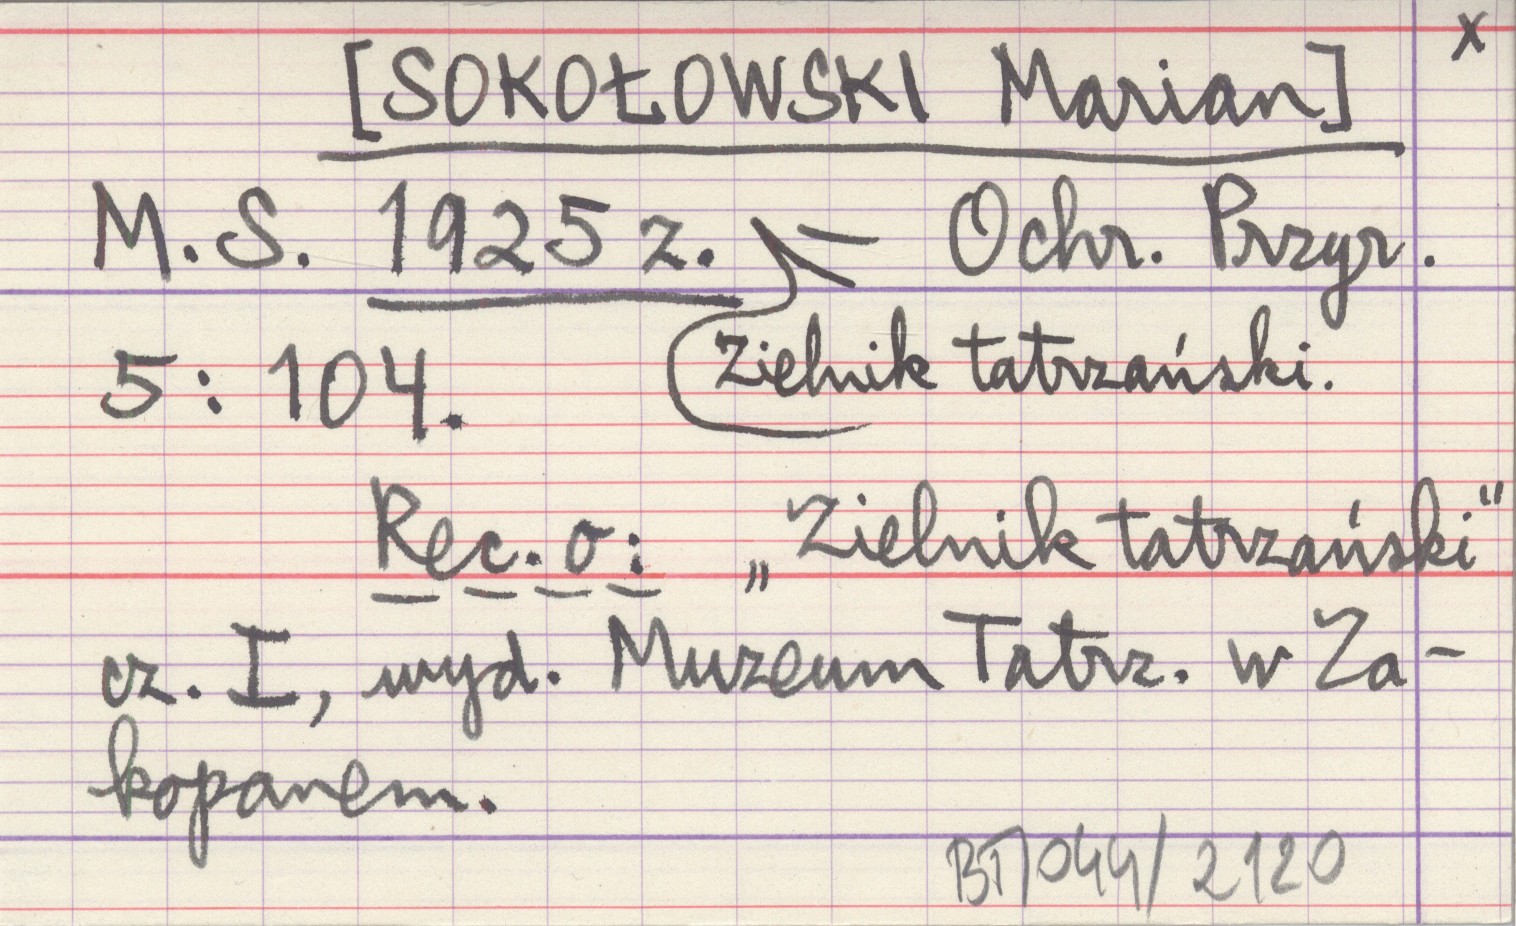 x
[SOKOŁOWSKI Marian]
M.S. 1925 z. – Ochr. Przyr.
Zielnik tatrzański.
5: 104.
Rec. o: „Zielnik tatrzański"
cz. I, wyd. Muzeum Tatrz. w Za-
kopanem.
BT/044/2120